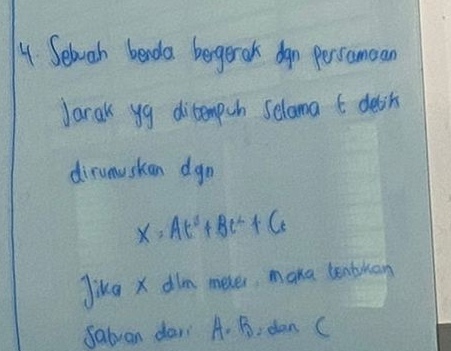 4. Sebuah benda bergerak dgn persamaan
Jarak yg ditempuh selama t detik
dirumuskan dgn
X = At³ + Bt² + Ct
Jika x dlm meter, maka tentukan
satuan dari A. B. dan C